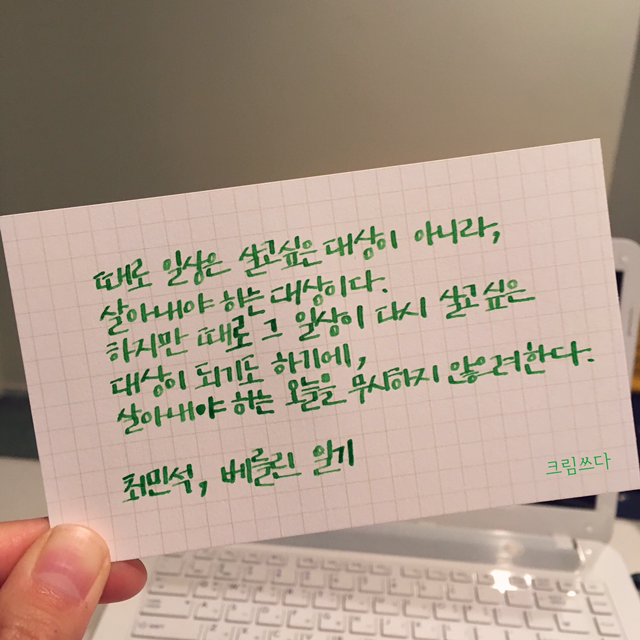 때로 일상은 살고싶은 대상이 아니라,
살아내야 하는 대상이다.
하지만 때로 그 일상이 다시 살고 싶은
대상이 되기도 하기에,
살아내야 하는 오늘을 무시하지 않으려한다.
최민석, 베를린 일기
크림쓰다